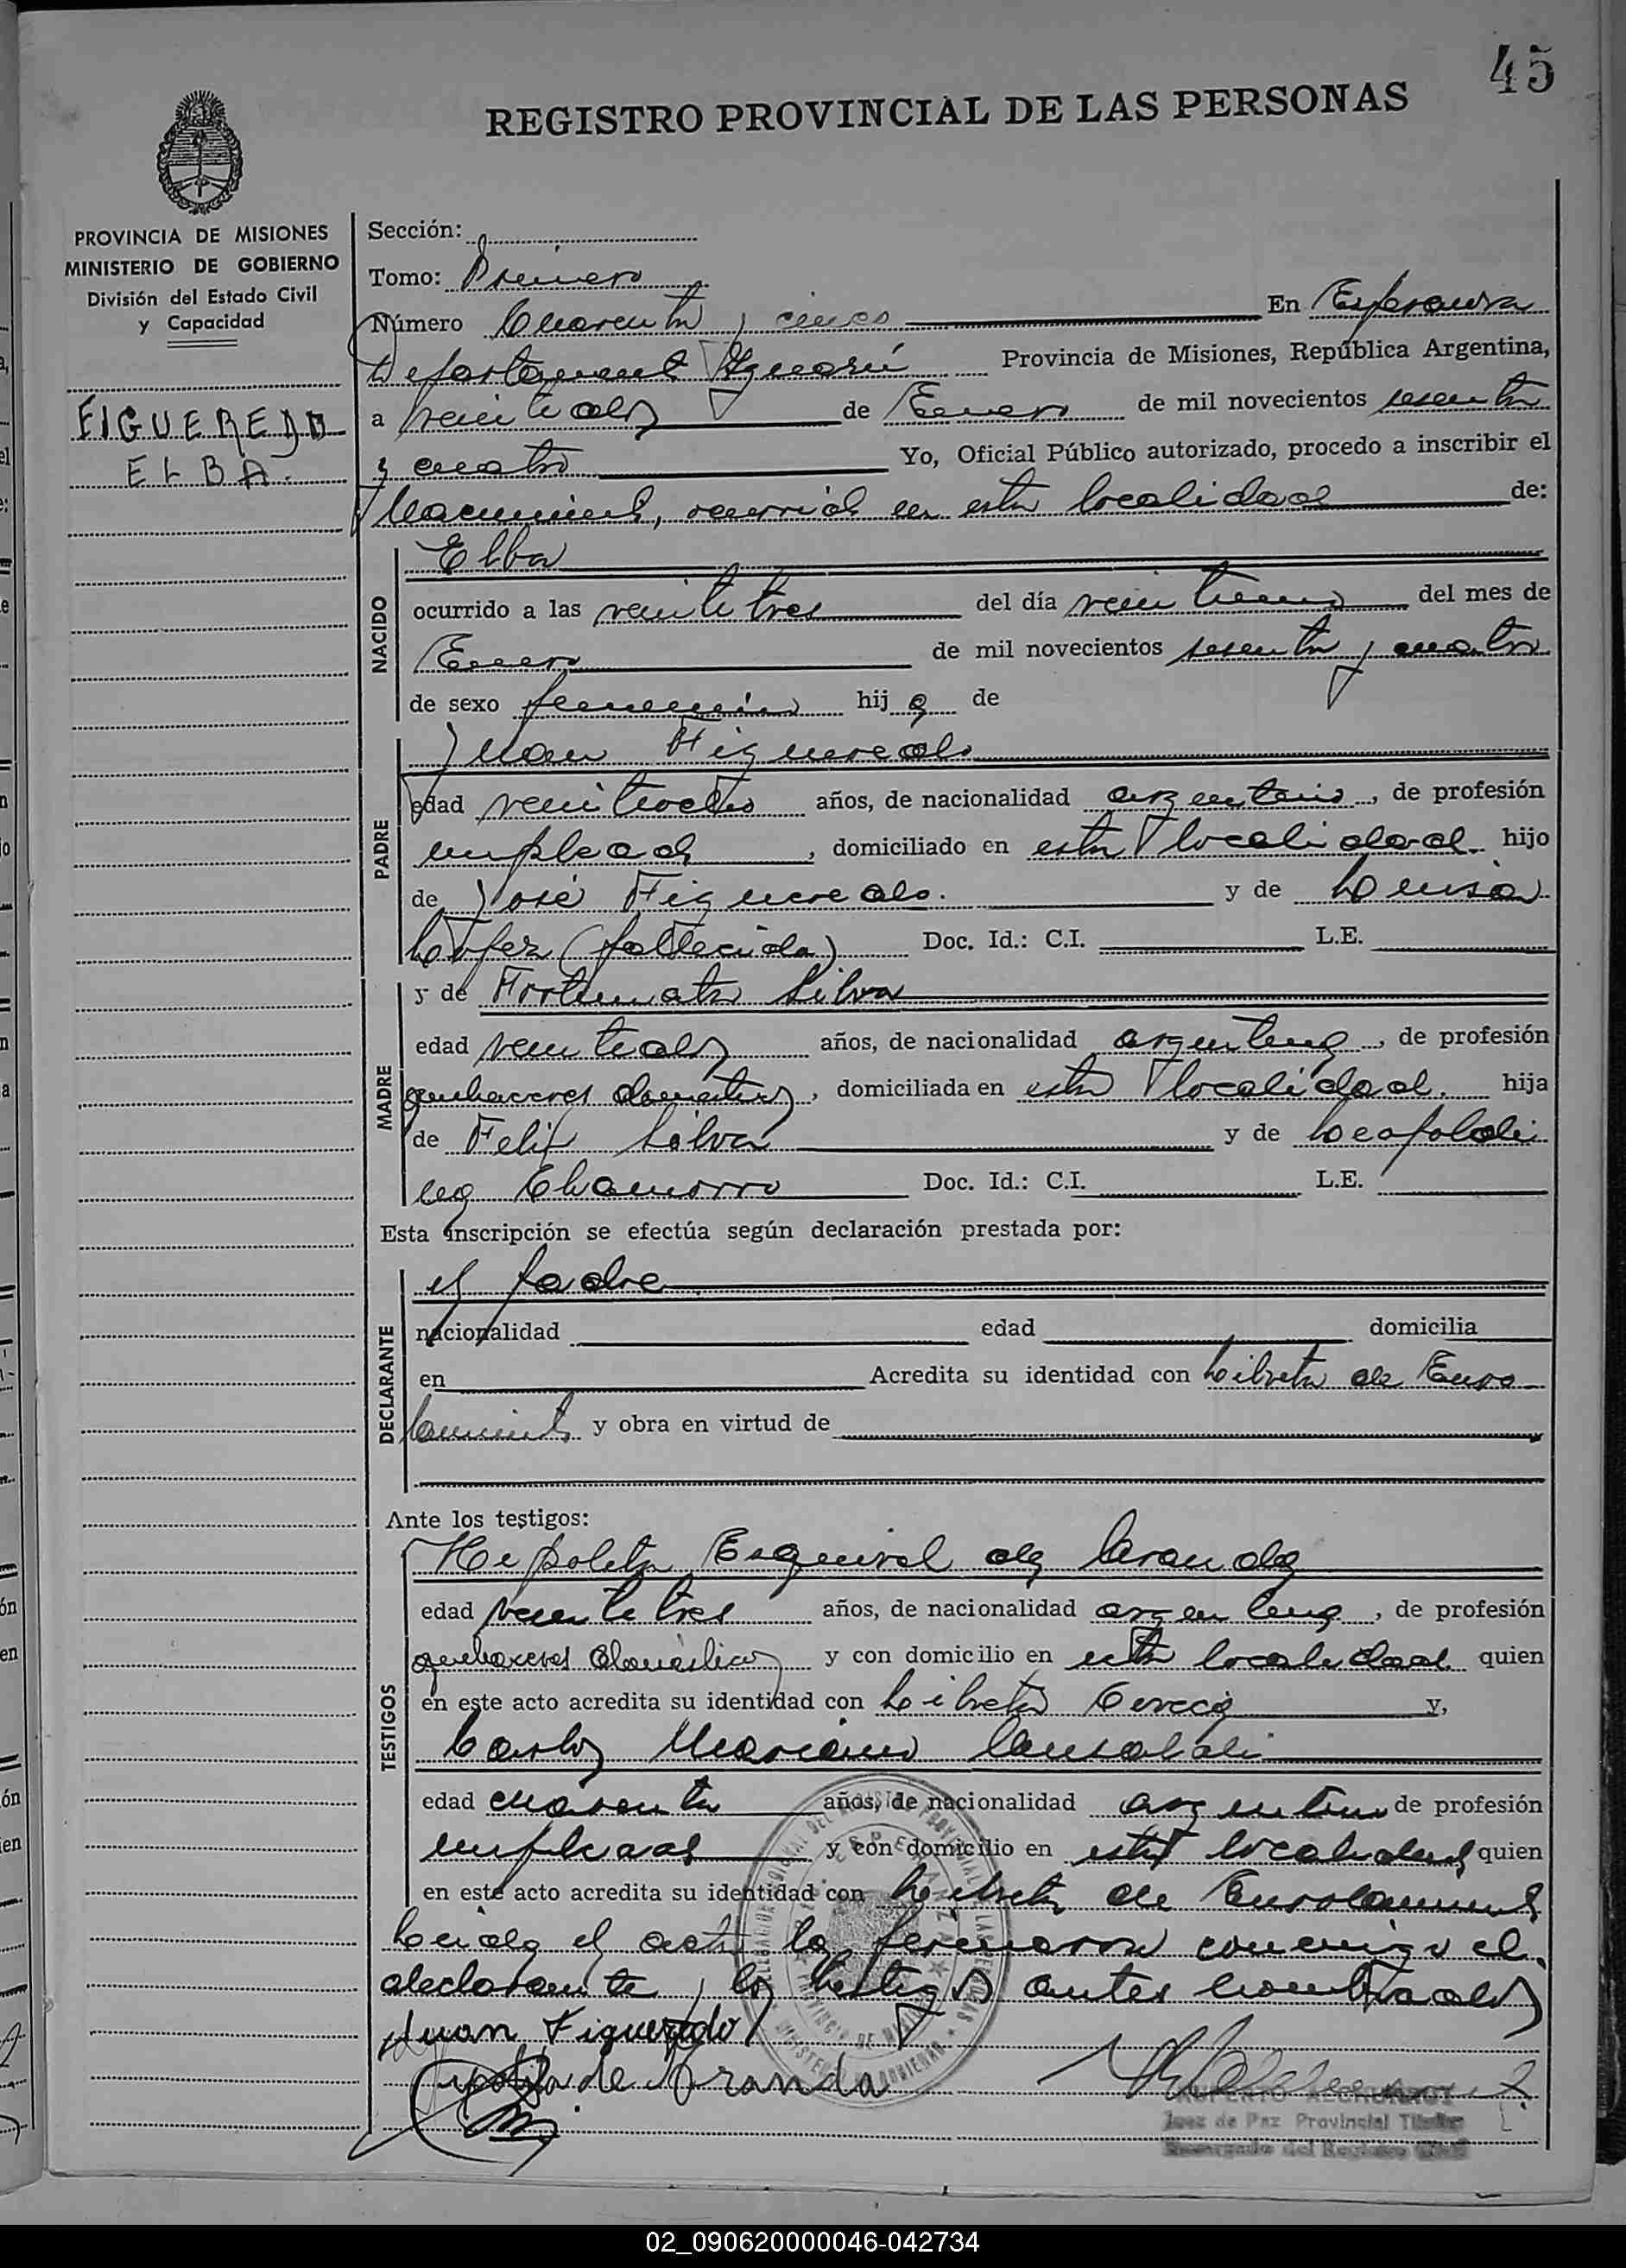 45
REGISTRO PROVINCIAL DE LAS PERSONAS
PROVINCIA DE MISIONES
MINISTERIO DE GOBIERNO
División del Estado Civil
y Capacidad
FIGUEREDO
ELBA.
Sección:
Tomo: Primero
Número Cuarenta y cinco En Esperanza
Departamento Yguazú Provincia de Misiones, República Argentina,
a veintidos de Enero de mil novecientos sesenta
y cuatro Yo, Oficial Público autorizado, procedo a inscribir el
Nacimiento, ocurrido en esta localidad de:
NACIDO
Elba
ocurrido a las veintitres del día veintiuno del mes de
Enero de mil novecientos sesenta y cuatro
de sexo femenino hija de
PADRE
Juan Figueredo
edad veintiocho años, de nacionalidad argentino, de profesión
empleado, domiciliado en esta localidad. hijo
de José Figueredo. y de Luisa
López (fallecida) Doc. Id.: C.I. L.E.
MADRE
y de Fortunata Silva
edad veintidos años, de nacionalidad argentina, de profesión
quehaceres domesticos, domiciliada en esta localidad. hija
de Felix Silva y de Leopoldi
na Chamorro Doc. Id.: C.I. L.E.
Esta inscripción se efectúa según declaración prestada por:
DECLARANTE
el padre
nacionalidad edad domicilia
en Acredita su identidad con Libreta de Enro
lamiento y obra en virtud de
Ante los testigos:
TESTIGOS
Hipolita Esquivel de Aranda
edad veintitres años, de nacionalidad argentina, de profesión
quehaceres domésticos y con domicilio en esta localidad quien
en este acto acredita su identidad con Libreta Civica y,
Carlos Mariano
edad cuarenta años, de nacionalidad argentino de profesión
empleado y con domicilio en esta localidad quien
en este acto acredita su identidad con Libreta de Enrolamiento
Leida el acta la firmaron conmigo el
declarante y los testigos antes nombrados
Juan Figueredo
de Aranda
Juez de Paz Provincial Titular
Encargado del Registro Civil
02_090620000046-042734